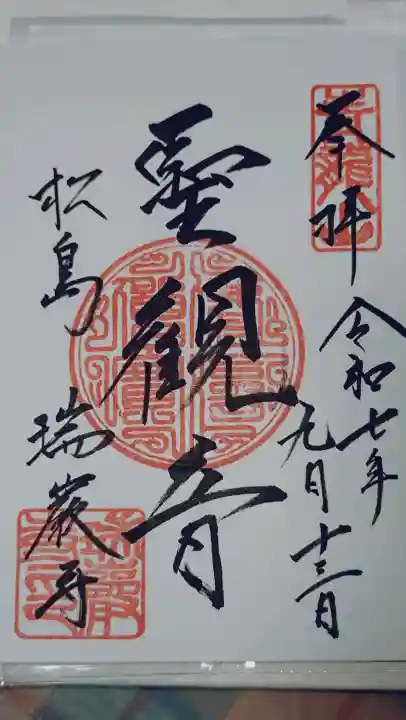 奉拝
令和七年
九月十三日
聖観音
松島 瑞巌寺